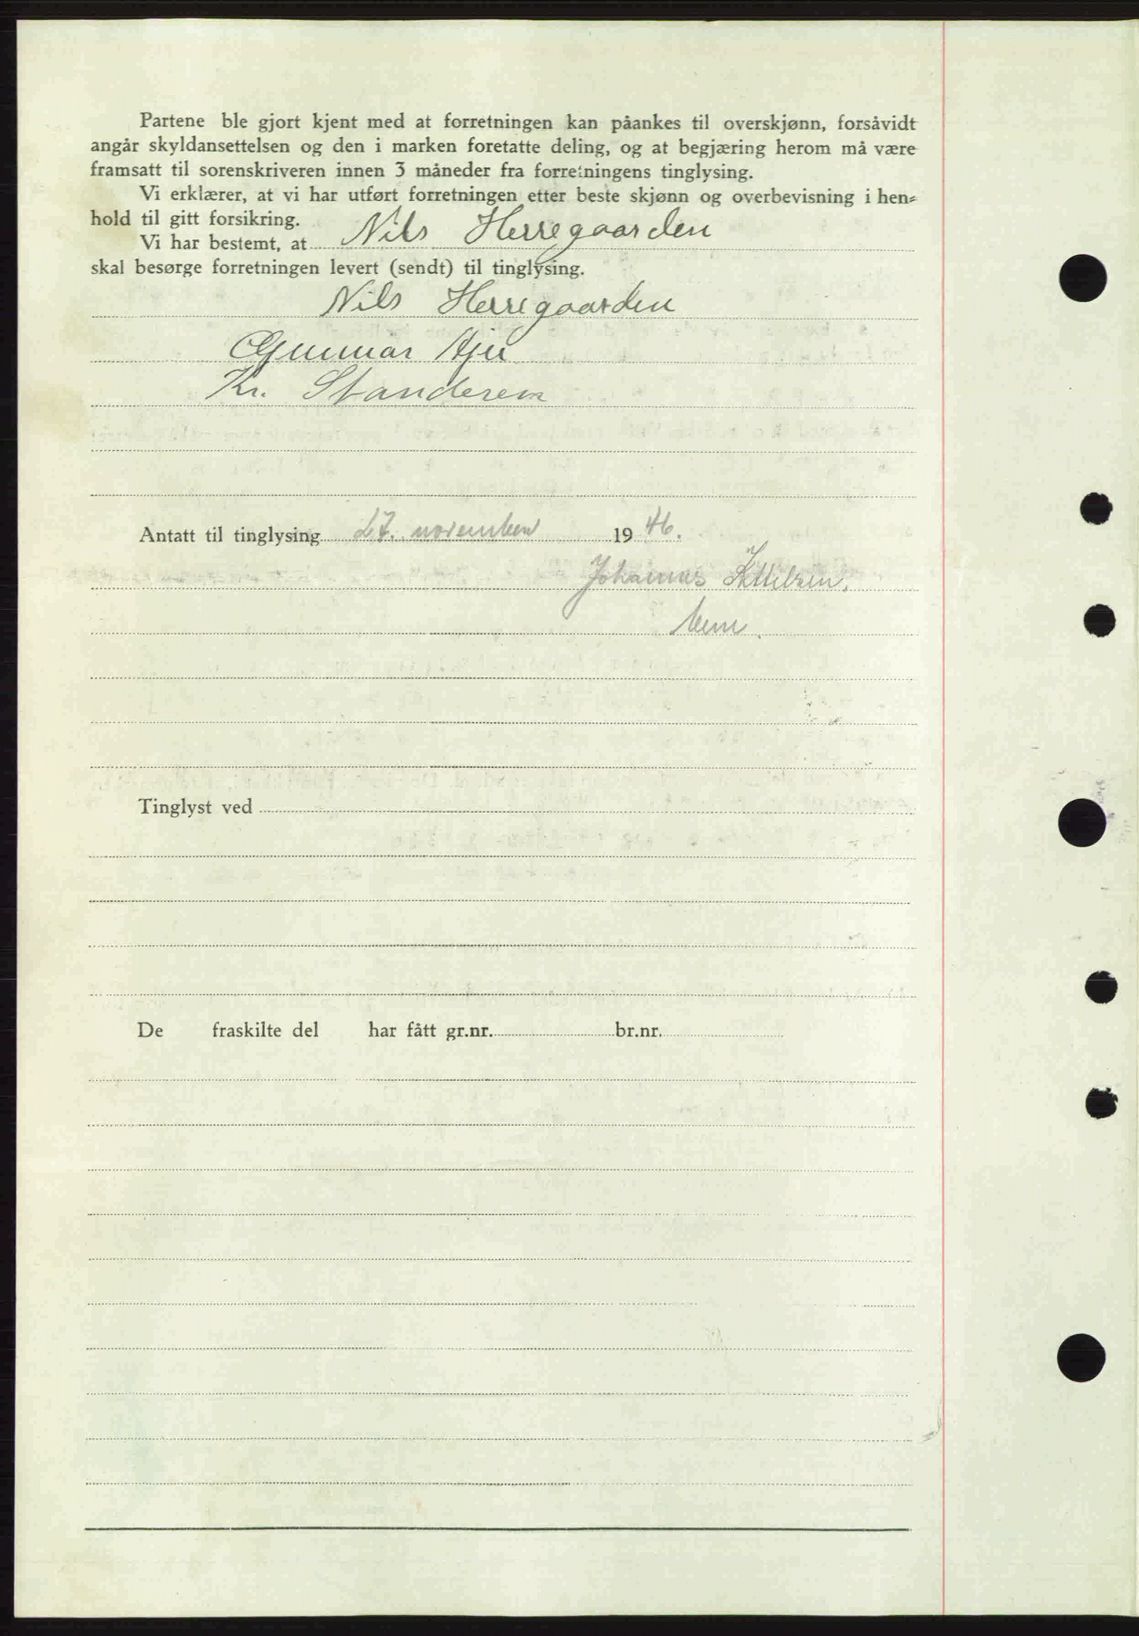 Partene ble gjort kjent med at forretningen kan påankes til overskjønn, forsåvidt
angår skyldansettelsen og den i marken foretatte deling, og at begjæring herom må være
framsatt til sorenskriveren innen 3 måneder fra forretningens tinglysing.
Vi erklærer, at vi har utført forretningen etter beste skjønn og overbevisning i hen-
hold til gitt forsikring.
Vi har bestemt, at Nils Herregaarden
skal besørge forretningen levert (sendt) til tinglysing.
Nils Herregaarden
Gunnar Hju
Kr. Standerem
Antatt til tinglysing 27. november 1946.
Johannes Kittilsen.
Tinglyst ved
De fraskilte del har fått gr.nr. br.nr.